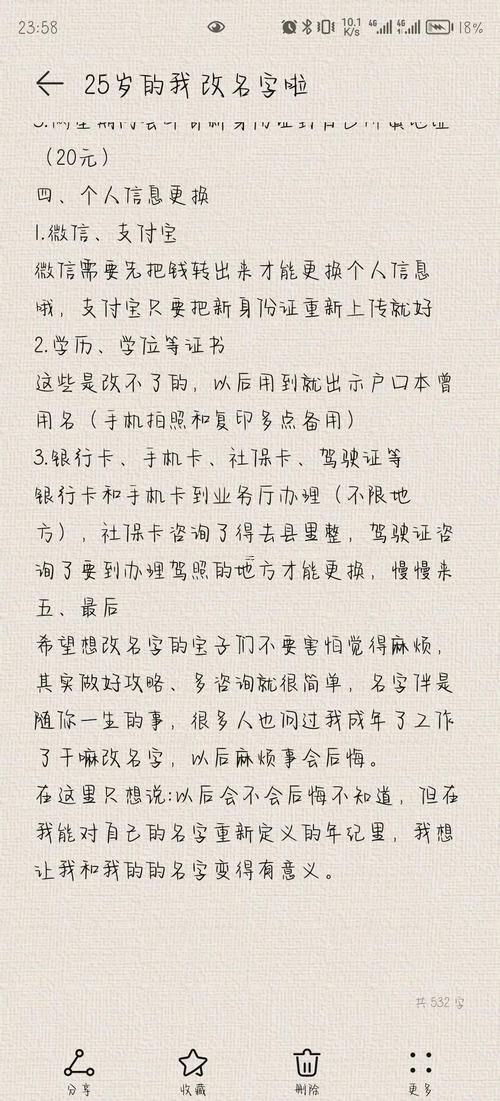 23:58
10.1 K/s 4G 4G 18%
25岁的我改名字啦
（20元）
四、个人信息更换
1.微信、支付宝
微信需要先把钱转出来才能更换个人信息
哦，支付宝只要把新身份证重新上传就好
2.学历、学位等证书
这些是改不了的，以后用到就出示户口本曾
用名（手机拍照和复印多点备用）
3.银行卡、手机卡、社保卡、驾驶证等
银行卡和手机卡到业务厅办理（不限地
方），社保卡咨询了得去县里整，驾驶证咨
询了要到办理驾照的地方才能更换，慢慢来
五、最后
希望想改名字的宝子们不要害怕觉得麻烦，
其实做好攻略、多咨询就很简单，名字伴是
随你一生的事，很多人也问过我成年了工作
了干嘛改名字，以后麻烦事会后悔。
在这里只想说:以后会不会后悔不知道，但在
我能对自己的名字重新定义的年纪里，我想
让我和我的的名字变得有意义。
共 532 字
分享 收藏 删除 更多